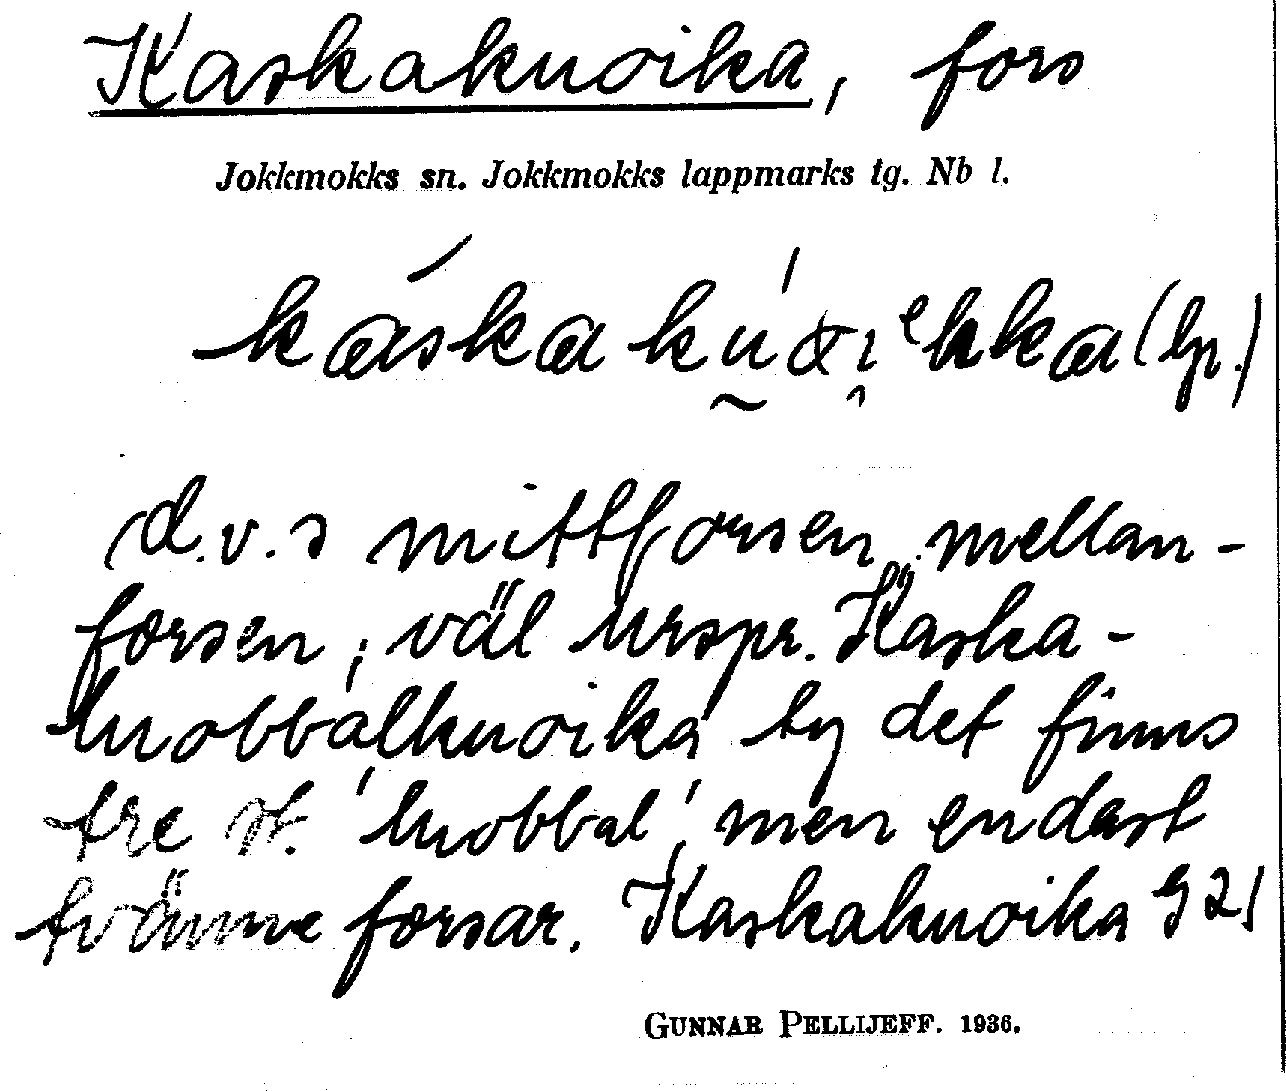 Kaskakuoika, fors
Jokkmokks sn. Jokkmokks lappmarks tg. Nb l.
(lp.)
d.v.s mittforsen, mellan-
forsen; väl urspr. "Kaska-
luobbalkuoika" ty det finns
tre st. 'luobbal', men endast
tvänne forsar. Kaskakuoika G 21
GUNNAR PELLIJEFF. 1936.